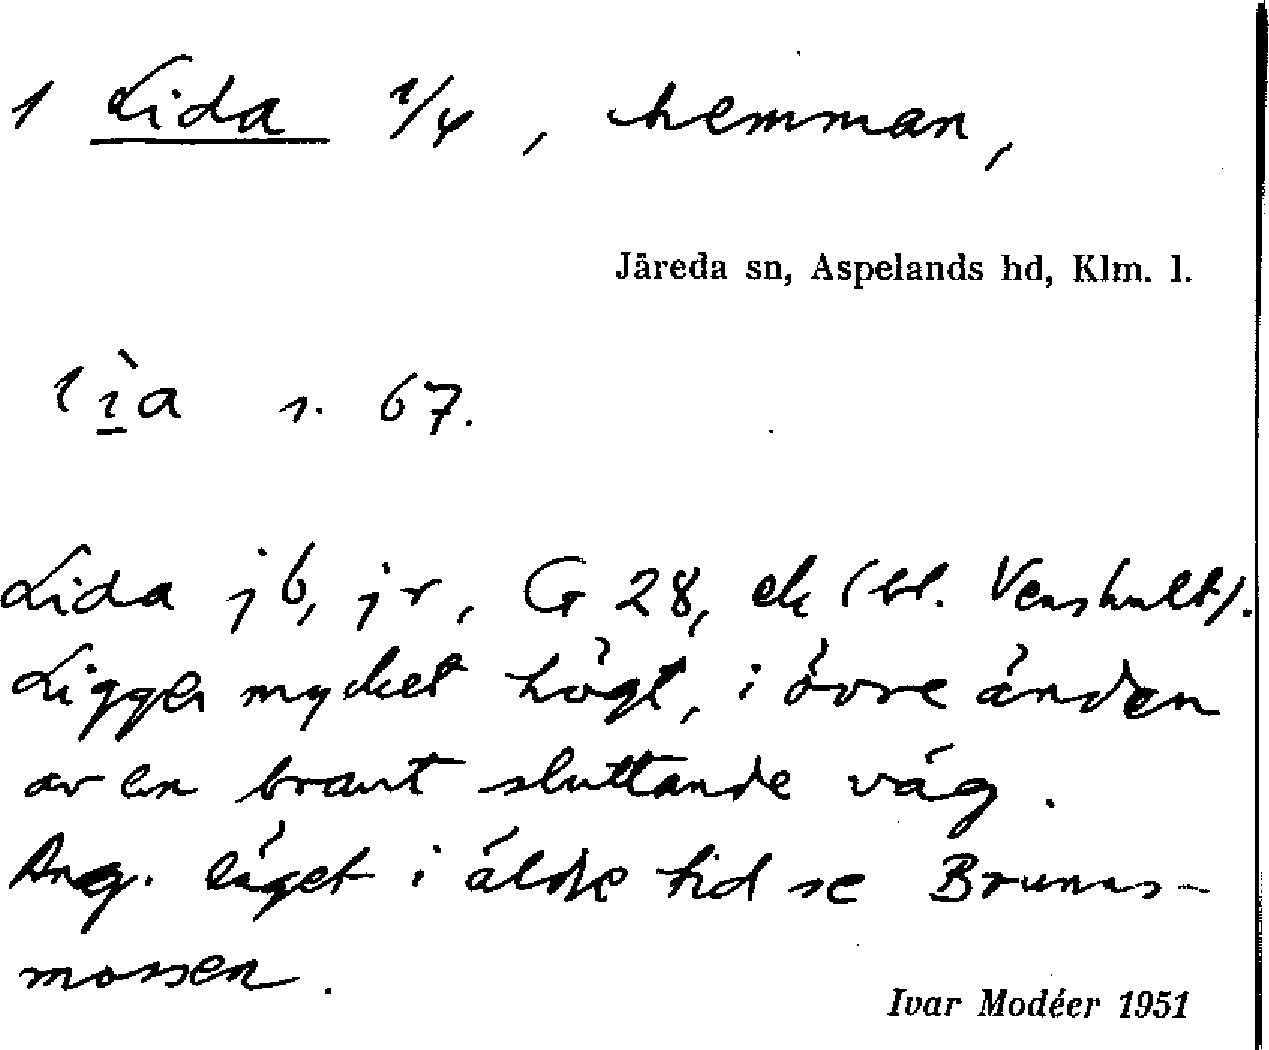 1 Lida 1/4, hemman,
Järeda sn, Aspelands hd, Klm. l.
lìa s. 67.
Lida jb, jr, G 28, ek (bl. Venshult).
Ligger mycket högt, i övre änden
av en brant sluttande väg.
Ang. läget i äldre tid se Brunns-
mossen.
Ivar Modéer 1951